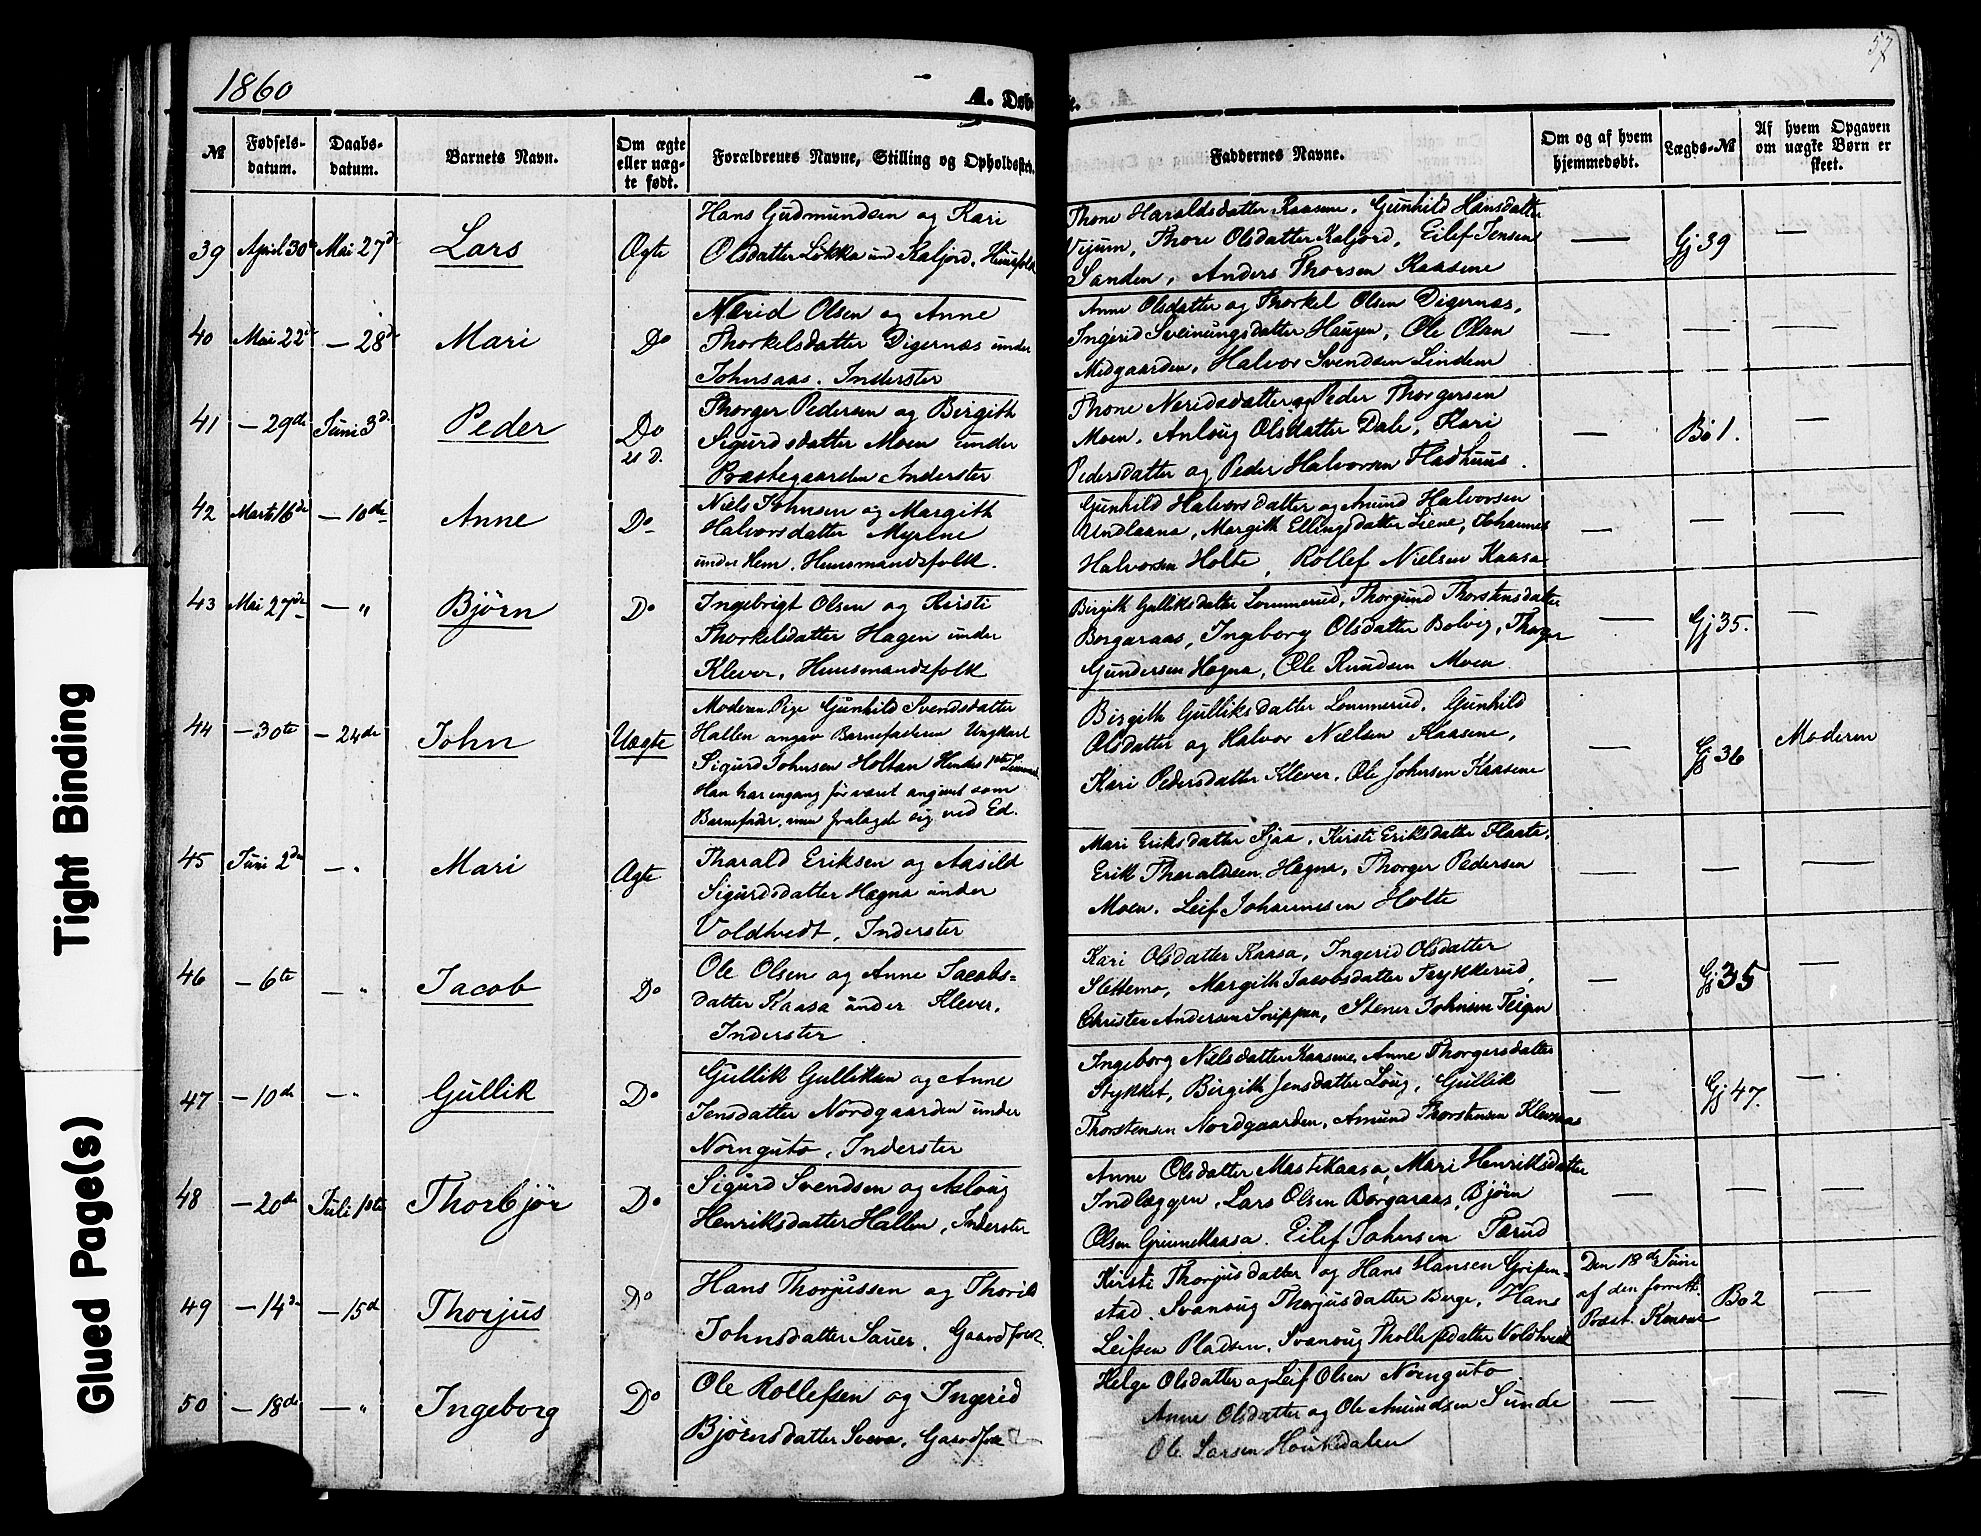 1860
57
A. Døb
№
Fødsels-
datum.
Daabs-
datum.
Barnets Navn.
Om ægte
eller uæg-
te født.
Forældrenes Navne, Stilling og Opholdssted.
Faddernes Navne.
Om og af hvem
hjemmedøbt.
Lægds-№
Af hvem Opgaven
om uægte Børn er
skeet.
39 April 30 Mai 27d Lars Ægte
Hans Gudmundsen og Kari
Olsdatter Løkka und Kaljord, Huusfolk
Thone Haraldsdatter Kaasene, Gunhild Hansdatter
Vijum, Thore Olsdatter Kaljord, Eilef Jensen
Sanden, Anders Thorsen Kaasene
— Gj 39 —
40 Mai 22de — 28de Mari Do
Nærid Olsen og Anne
Thorkelsdatter Digernæs under
Johnsaas. Inderster
Anne Olsdatter og Thorkel Olsen Digernæs,
Ingerid Sveinungsdatter Haugen, Ole Olsen
Midgaarden, Halvor Svendsen Lindem
— — —
41 — 29de Juni 3d. Peder Do
21 D.
Thorger Pedersen og Birgith
Sigurdsdatter Moen under
Præstegaarden Inderster
Thone Neridsdatter og Peder Thorgersen
Moen, Anlaug Olsdatter Dale, Kari
Pedersdatter og Peder Halvorsen Fladhuus.
— Bø 1. —
42 Marts 16de — 10de Anne Do
Niels Johnsen og Margith
Halvorsdatter Myrene
under Hem, Huusmandsfolk.
Gunhild Halvorsdatter og Amund Halvorsen
Undlaana, Margith Ellingsdatter Liene, Johannes
Halvorsen Holte, Rollef Nielsen Kaasa
— — —
43 Mai 27de — " Bjørn Do
Ingebrigt Olsen og Kirsti
Thorkelsdatter Hagen under
Klever, Huusmandsfolk
Birgith Gulliksdatter Lommerud, Thorgund Thorstensdatter
Borgaraas, Ingeborg Olsdatter Bolvig, Thorger
Gundersen Hogna, Ole Knudsen Moen.
— Gj 35. —
44 — 30te — 24de John Uægte
Moderen Pige Gunhild Svendsdatter
Hallen angav Barnefaderen Ungkarl
Sigurd Johnsen Holtan Hendes 1ste Leiermaal.
Han har engang før været angivet som
Barnefader, men fralagde sig ved Ed.
Birgith Gulliksdatter Lommerud, Gunhild
Olsdatter og Halvor Nielsen Kaasene,
Kari Pedersdatter Klever, Ole Johnsen Kaasene
— Gj 36 Moderen
45 Juni 2den — " Mari Ægte
Tharald Eriksen og Aasild
Sigurdsdatter Hægna under
Voldtvedt, Inderster
Mari Eriksdatter Sjaa, Kirsti Eriksdatter Flaata,
Erik Tharaldsen Hægna, Thorger Pedersen
Moen, Leif Johannesen Holte
— — —
46 — 6te — " Jacob Do
Ole Olsen og Anne Jacobs-
datter Kaasa under Klever,
Inderster.
Kari Olsdatter Kaasa, Ingerid Olsdatter
Slettemo, Margith Jacobsdatter Trykkerud,
Christen Andersen Snippen, Stener Johnsen Teigen
— Gj 35 —
47 — 10de — " Gullik Do
Gullik Gulliksen og Anne
Jensdatter Nordgaarden under
Nornguto, Inderster
Ingeborg Nielsdatter Kaasene, Anne Thorgersdatter
Stykket, Birgith Jensdatter Loug, Gullik
Thorstensen Nordgaarden, Amund Thorstensen
— Gj 47. —
48 — 20de Juli 1ste Thorbjør Do
Sigurd Svendsen og Aslaug
Henriksdatter Hallen, Inderster
Anne Olsdatter Mastekaasa, Mari Henriksdatter
Indlæggen, Lars Olsen Borgaraas, Bjørn
Olsen Grinnekaasa. Eilef Johnsen Tarud
— — —
49 — 14de — 15d Thorjus Do
Hans Thorjussen og Thorild
Johnsdatter Sauer, Gaardfolk.
Kirsti Thorjusdatter og Hans Hansen Gripen-
stad. Svanaug Thorjusdatter Berge, Hans
Leifsen Pladsen, Svanaug Thollefsdatter Voldtvedt
Den 18de Juni
af den forrett.
Præst.
Bø 2 —
50 — 18de — " Ingeborg Do
Ole Rollefsen og Ingerid
Bjørnsdatter Sveva, Gaardfolk
Helge Olsdatter og Leif Olsen Nornguto
Anne Olsdatter og Ole Amundsen Sunde
Ole Larsen Haukedalen
— — —
Tight Binding
Glued Page(s)